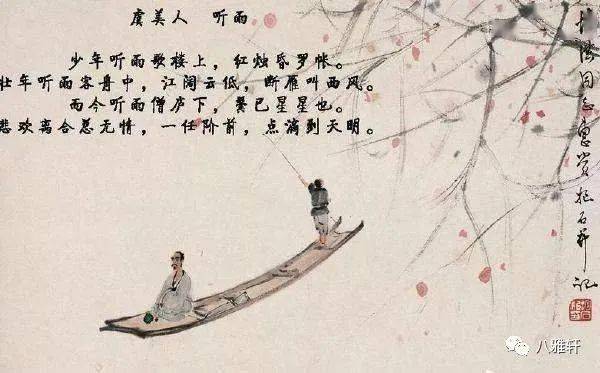 虞美人 听雨
少年听雨歌楼上，红烛昏罗帐。
壮年听雨客舟中，江阔云低，断雁叫西风。
而今听雨僧庐下，鬓已星星也。
悲欢离合总无情，一任阶前，点滴到天明。
同志惠赏抱石并记
八雅轩